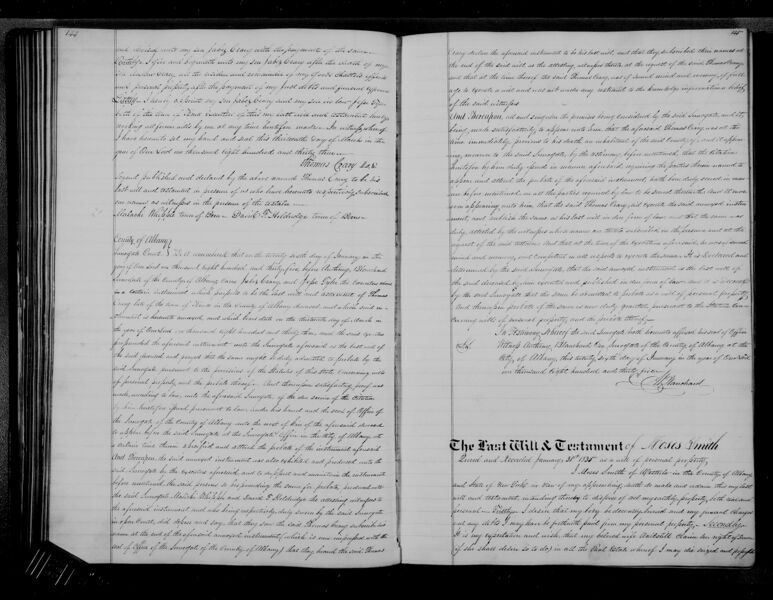 144
and devise unto my son Jabiz Crary with the payment of the same
Fifthly I give and bequeath unto my son Jabiz Crary after the death of my
the residue and remainder of my Goods Chattels effects
and personal property after the payment of my just debts and general expenses
Lastly I hereby appoint my son Jabiz Crary and my son in law Jesse Tyler
both of the town of Bern Executors of this my last will and testament hereby
revoking all former wills by me at any time heretofore made. In witness whereof
I have hereunto set my hand and seal this thirteenth day of March in the
year of Our Lord one thousand eight hundred and thirty three
Thomas Crary L.S.
Signed published and declared by the above named Thomas Crary to be his
last will and testament in presence of us who have hereunto respectively subscribed
our names as witnesses in the presence of the testator
Malachi Whipple town of Bern David P. Holdridge town of Bern
County of Albany
Surrogate Court } Be it remembered that on the twenty sixth day of January in the
year of Our Lord one thousand eight hundred and thirty five before Anthony Blanchard
Surrogate of the County of Albany came Jabiz Crary and Jesse Tyler the executors named
in a certain instrument which purports to be the last will and testament of Thomas
Crary late of the town of Bern in the County of Albany deceased and which said in-
strument is hereunto annexed and which bears date on the thirteenth day of March in
the year of Our Lord one thousand eight hundred and thirty three, and the said executors
propounded the aforesaid instrument unto the Surrogate aforesaid as the last will of
the said deceased and prayed that the same might be duly admitted to probate by the
said Surrogate pursuant to the provisions of the Statutes of this State concerning wills
of personal property and the probate thereof. And thereupon satisfactory proof was
made, according to law, unto the aforesaid Surrogate of the due service of the citation
by him heretofore issued pursuant to law, under his hand and the seal of Office of
the Surrogate of the County of Albany unto the next of kin of the aforesaid deceased
to appear before the said Surrogate at the Surrogates Office in the City of Albany, at
a certain time therein specified and attend the probate of the instrument aforesaid
And Thereupon the said annexed instrument was also exhibited and produced unto the
said Surrogate by the executors aforesaid, and to support and maintain the instrument
before mentioned the said persons so propounding the same for probate, produced unto
the said Surrogate Malachi Whipple and David P. Holdridge the attesting witnesses to
the aforesaid instrument and who being respectively duly sworn by the said Surrogate
in open Court, did depose and say, that they saw the said Thomas Crary subscribe his
name at the end of the aforesaid annexed instrument, (which is now impressed with the
seal of Office of the Surrogate of the County of Albany) that they heard the said Thomas
145
Crary declare the aforesaid instrument to be his last will, and that they subscribed their names at
the end of the said will as the attesting witnesses thereto at the request of the said Thomas Crary,
and that at the time thereof the said Thomas Crary was of sound mind and memory, of full
age to execute a will and was not under any restraint to the knowledge information or belief
of the said witnesses
And Thereupon, all and singular the premises being considered by the said Surrogate, and it
being made satisfactorily to appear unto him that the aforesaid Thomas Crary was at the
time immediately previous to his death an inhabitant of the said County of
manner to the said Surrogate by the testimony before mentioned, that the citation
heretofore by him duly issued in manner aforesaid requiring the parties therein named to
appear and attend the probate of the aforesaid instrument, hath been duly served in man-
ner before mentioned, on all the parties required by law to be served therewith, And it more-
over appearing unto him, that the said Thomas Crary, did execute the said annexed instru-
ment, and publish the same as his last will in due form of law, and that the same was
duly attested by the witnesses whose names are thereto subscribed in the presence and at the
request of the said testator. And that at the time of the execution aforesaid, he was of sound
mind and memory, and competent in all respects to execute the same. It is Declared and
determined by the said Surrogate, that the said annexed instrument is the last will of
the said deceased, by him executed and published in due form of law. And it is Decreed
by the said Surrogate that the same be admitted to probate as a will of personal property
and thereupon probate of the same is now duly granted pursuant to the Statute con-
cerning wills of personal property, and the probate thereof.
In Testimony Whereof the said Surrogate hath hereunto affixed his seal of Office
Witness Anthony Blanchard Esq. Surrogate of the County of Albany at the
City of Albany, this twenty sixth day of January in the year of Our Lord
one thousand eight hundred and thirty five.
A. Blanchard
The Last Will & Testament of Moses Smith
Proved and Recorded January 31st 1835 as a will of personal property
I Moses Smith of Westerlo in the County of Albany
and State of New York, in view of my approaching death do make and ordain this my last
will and testament, intending thereby to dispose of all my worldly property, both real and
personal. Firstly, I desire that my body be decently buried and my funeral charges
and my debts I may have be first paid from my personal property. Secondly,
It is my expectation and wish, that my beloved wife will claim her right of dower
(if she shall desire so to do) in all the Real Estate whereof I may die seized and possessed